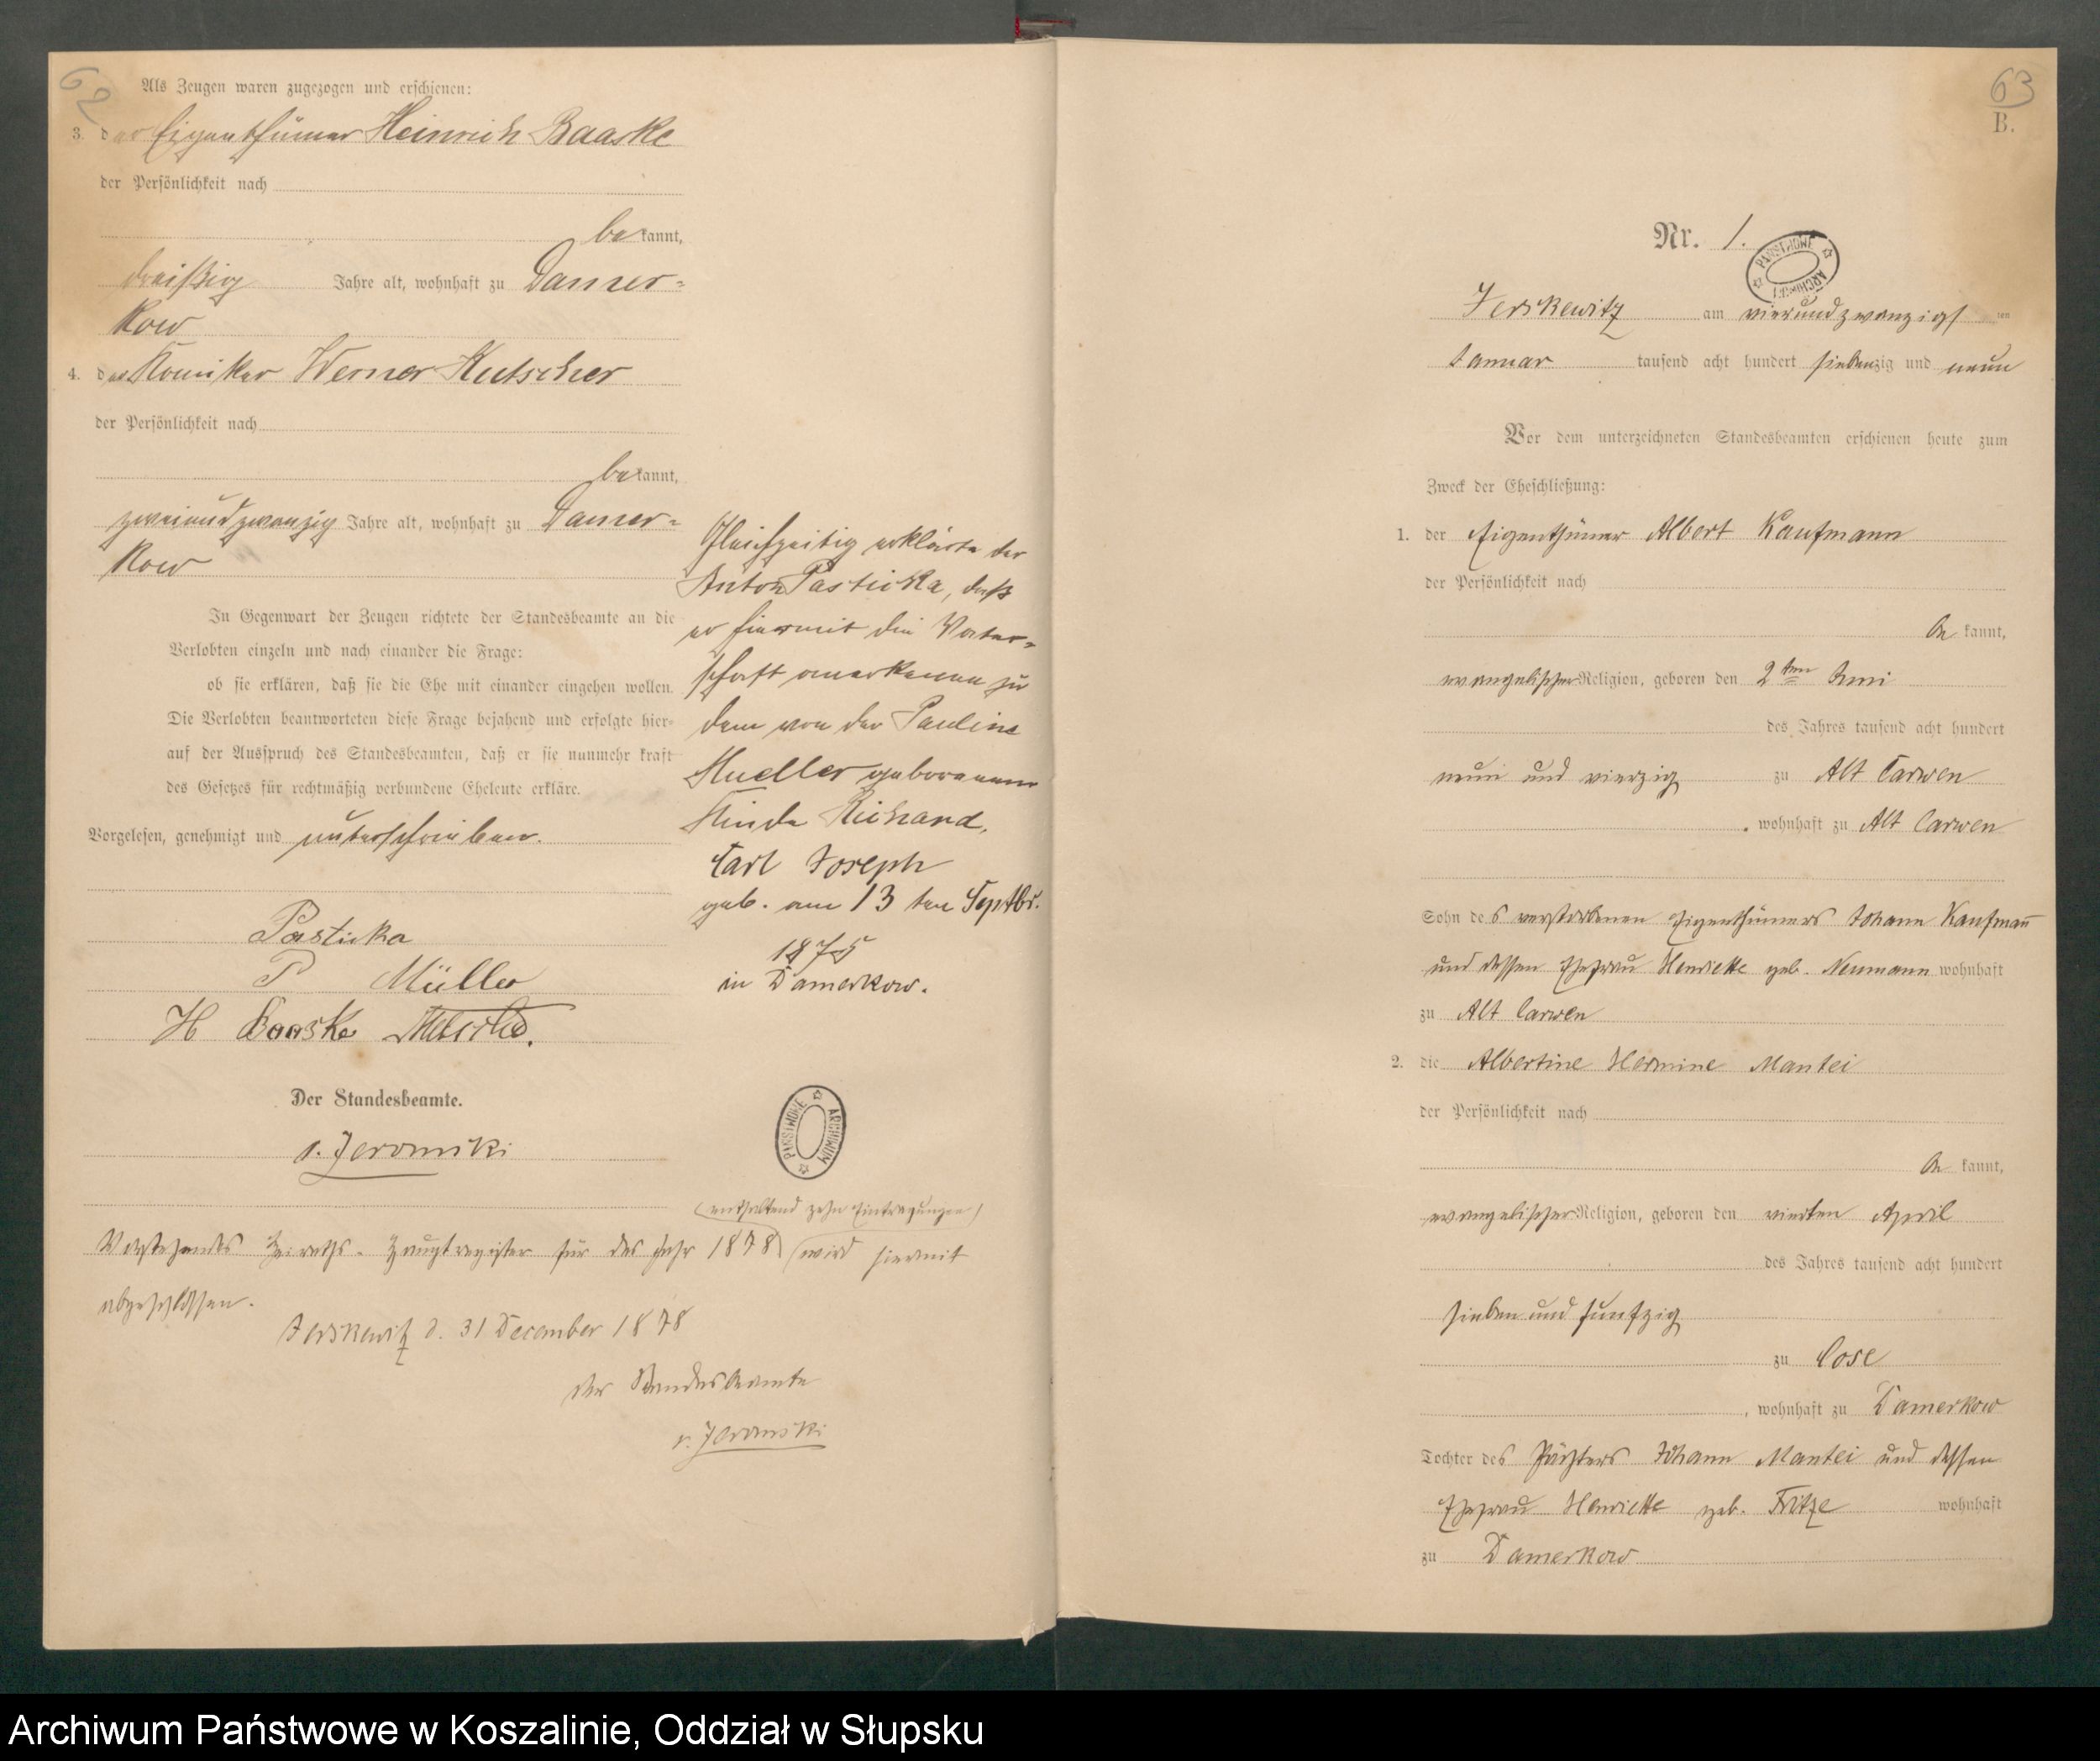 62
Als Zeugen waren zugezogen und erschienen:
3. der Eigenthümer Heinrich Baaske
der Persönlichkeit nach
bekannt,
dreißig Jahre alt, wohnhaft zu Damer-
kow
4. der Komiker Werner Kutscher
der Persönlichkeit nach
bekannt,
zweiundzwanzig Jahre alt, wohnhaft zu Damer-
kow
In Gegenwart der Zeugen richtete der Standesbeamte an die
Verlobten einzeln und nach einander die Frage:
ob sie erklären, daß sie die Ehe mit einander eingehen wollen.
Die Verlobten beantworteten diese Frage bejahend und erfolgte hier-
auf der Ausspruch des Standesbeamten, daß er sie nunmehr kraft
des Gesetzes für rechtmäßig verbundene Eheleute erkläre.
Vorgelesen, genehmigt und unterschrieben.
Pasticka
P Müller
H Baaske
Der Standesbeamte.
v. Jeromski
Gleichzeitig erklärte der
Anton Pasticka, daß
er hiermit die Vater-
schaft anerkenne zu
dem von der Pauline
Mueller geborenen
Kinde Richard,
Carl Joseph
geb. am 13ten Septbr.
1875
in Damerkow.
PAŃSTWOWE ARCHIWUM
(enthaltend zehn Eintragungen)
Vorstehendes Heiraths-Hauptregister für das Jahr 1878 wird hiermit
abgeschlossen.
Jerskewitz d. 31 December 1878
Der Standesbeamte
v. Jeromski
63
B.
Nr. 1.
PAŃSTWOWE ARCHIWUM
Jerskewitz am vierundzwanzigsten
Januar tausend acht hundert siebenzig und neun
Vor dem unterzeichneten Standesbeamten erschienen heute zum
Zweck der Eheschließung:
1. der Eigenthümer Albert Kaufmann
der Persönlichkeit nach
be kannt,
evangelischer Religion, geboren den 2ten Juni
des Jahres tausend acht hundert
neun und vierzig zu Alt Carwen
, wohnhaft zu Alt Carwen
Sohn des verstorbenen Eigenthümers Johann Kaufmann
und dessen Ehefrau Henriette geb. Neumann wohnhaft
zu Alt Carwen
2. die Albertine Hermine Mantei
der Persönlichkeit nach
be kannt,
evangelischer Religion, geboren den vierten April
des Jahres tausend acht hundert
sieben und funfzig
zu Cose
, wohnhaft zu Damerkow
Tochter des Pächters Johann Mantei und dessen
Ehefrau Henriette geb. Fritze wohnhaft
zu Damerkow
Archiwum Państwowe w Koszalinie, Oddział w Słupsku